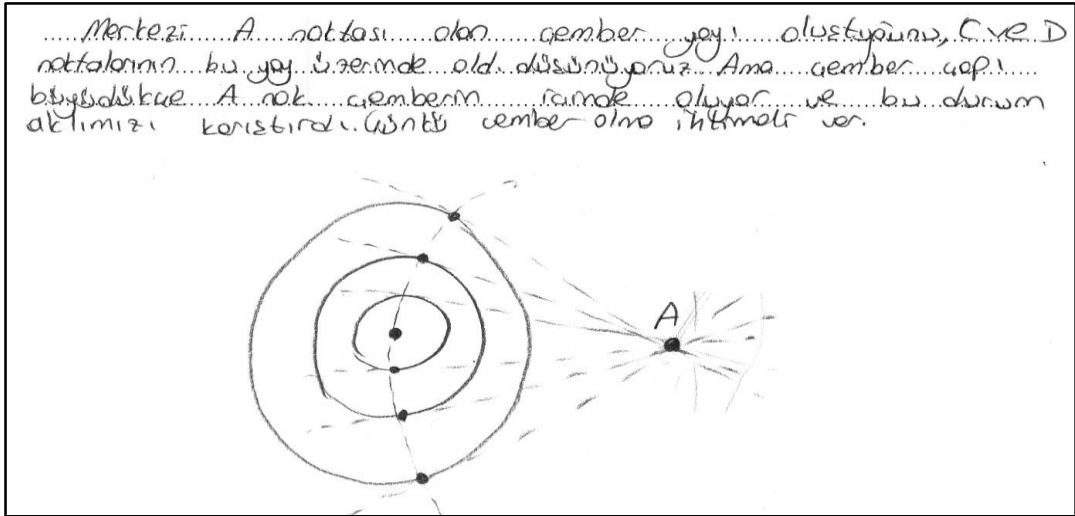 Merkezi A noktası olan çember yayı oluştuğunu, C ve D
noktalarının bu yay üzerinde old. düşünüyoruz Ama çember çapı
büyüdükçe A nok. çemberin içinde oluyor ve bu durum
aklımızı karıştırdı. Çünkü çember olma ihtimali var.
A